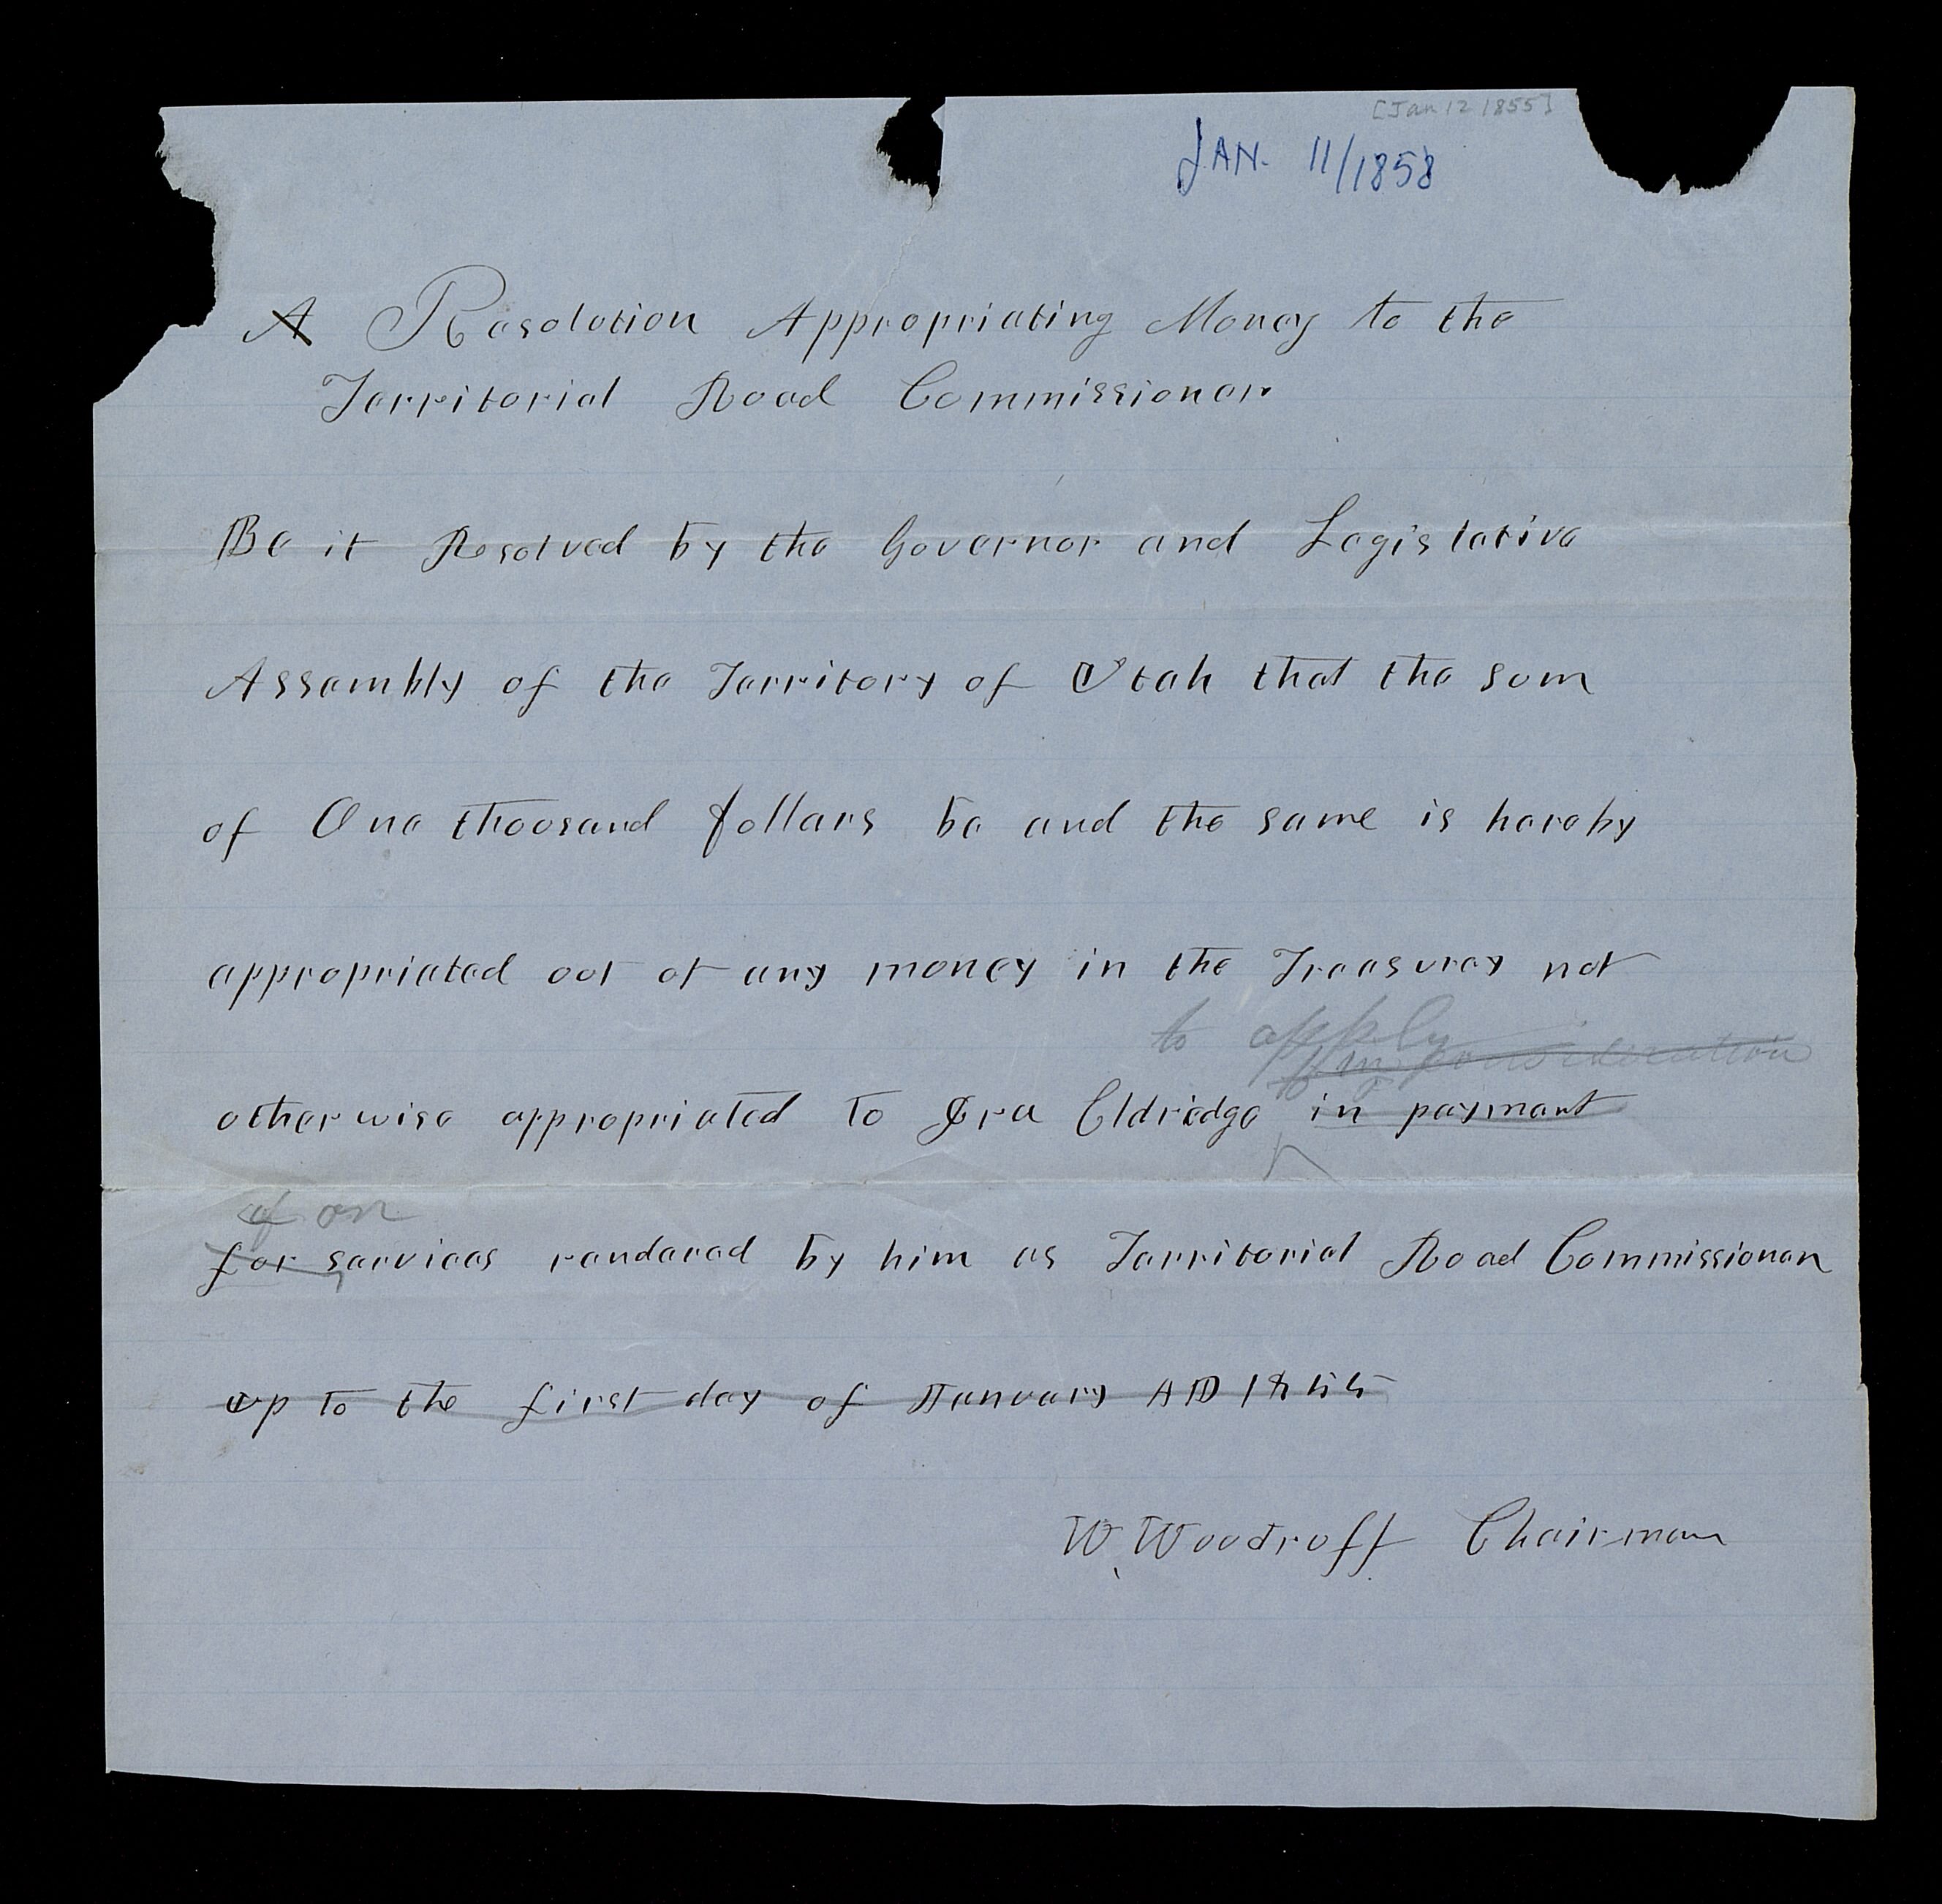 [Jan 12 1855]
JAN. 11/1858
A Resolution Appropriating Money to the
Territorial Road Commissioner
Be it Resolved by the Governor and Legislative
Assembly of the Territory of Utah that the sum
of One thousand dollars be and the same is hereby
appropriated out of any money in the Treasurey not
to apply
in consideration
otherwise appropriated to Ira Eldridge in payment
of on
for services rendered by him as Territorial Road Commissioner
up to the first day of January AD 1855
W. Woodruff Chairman